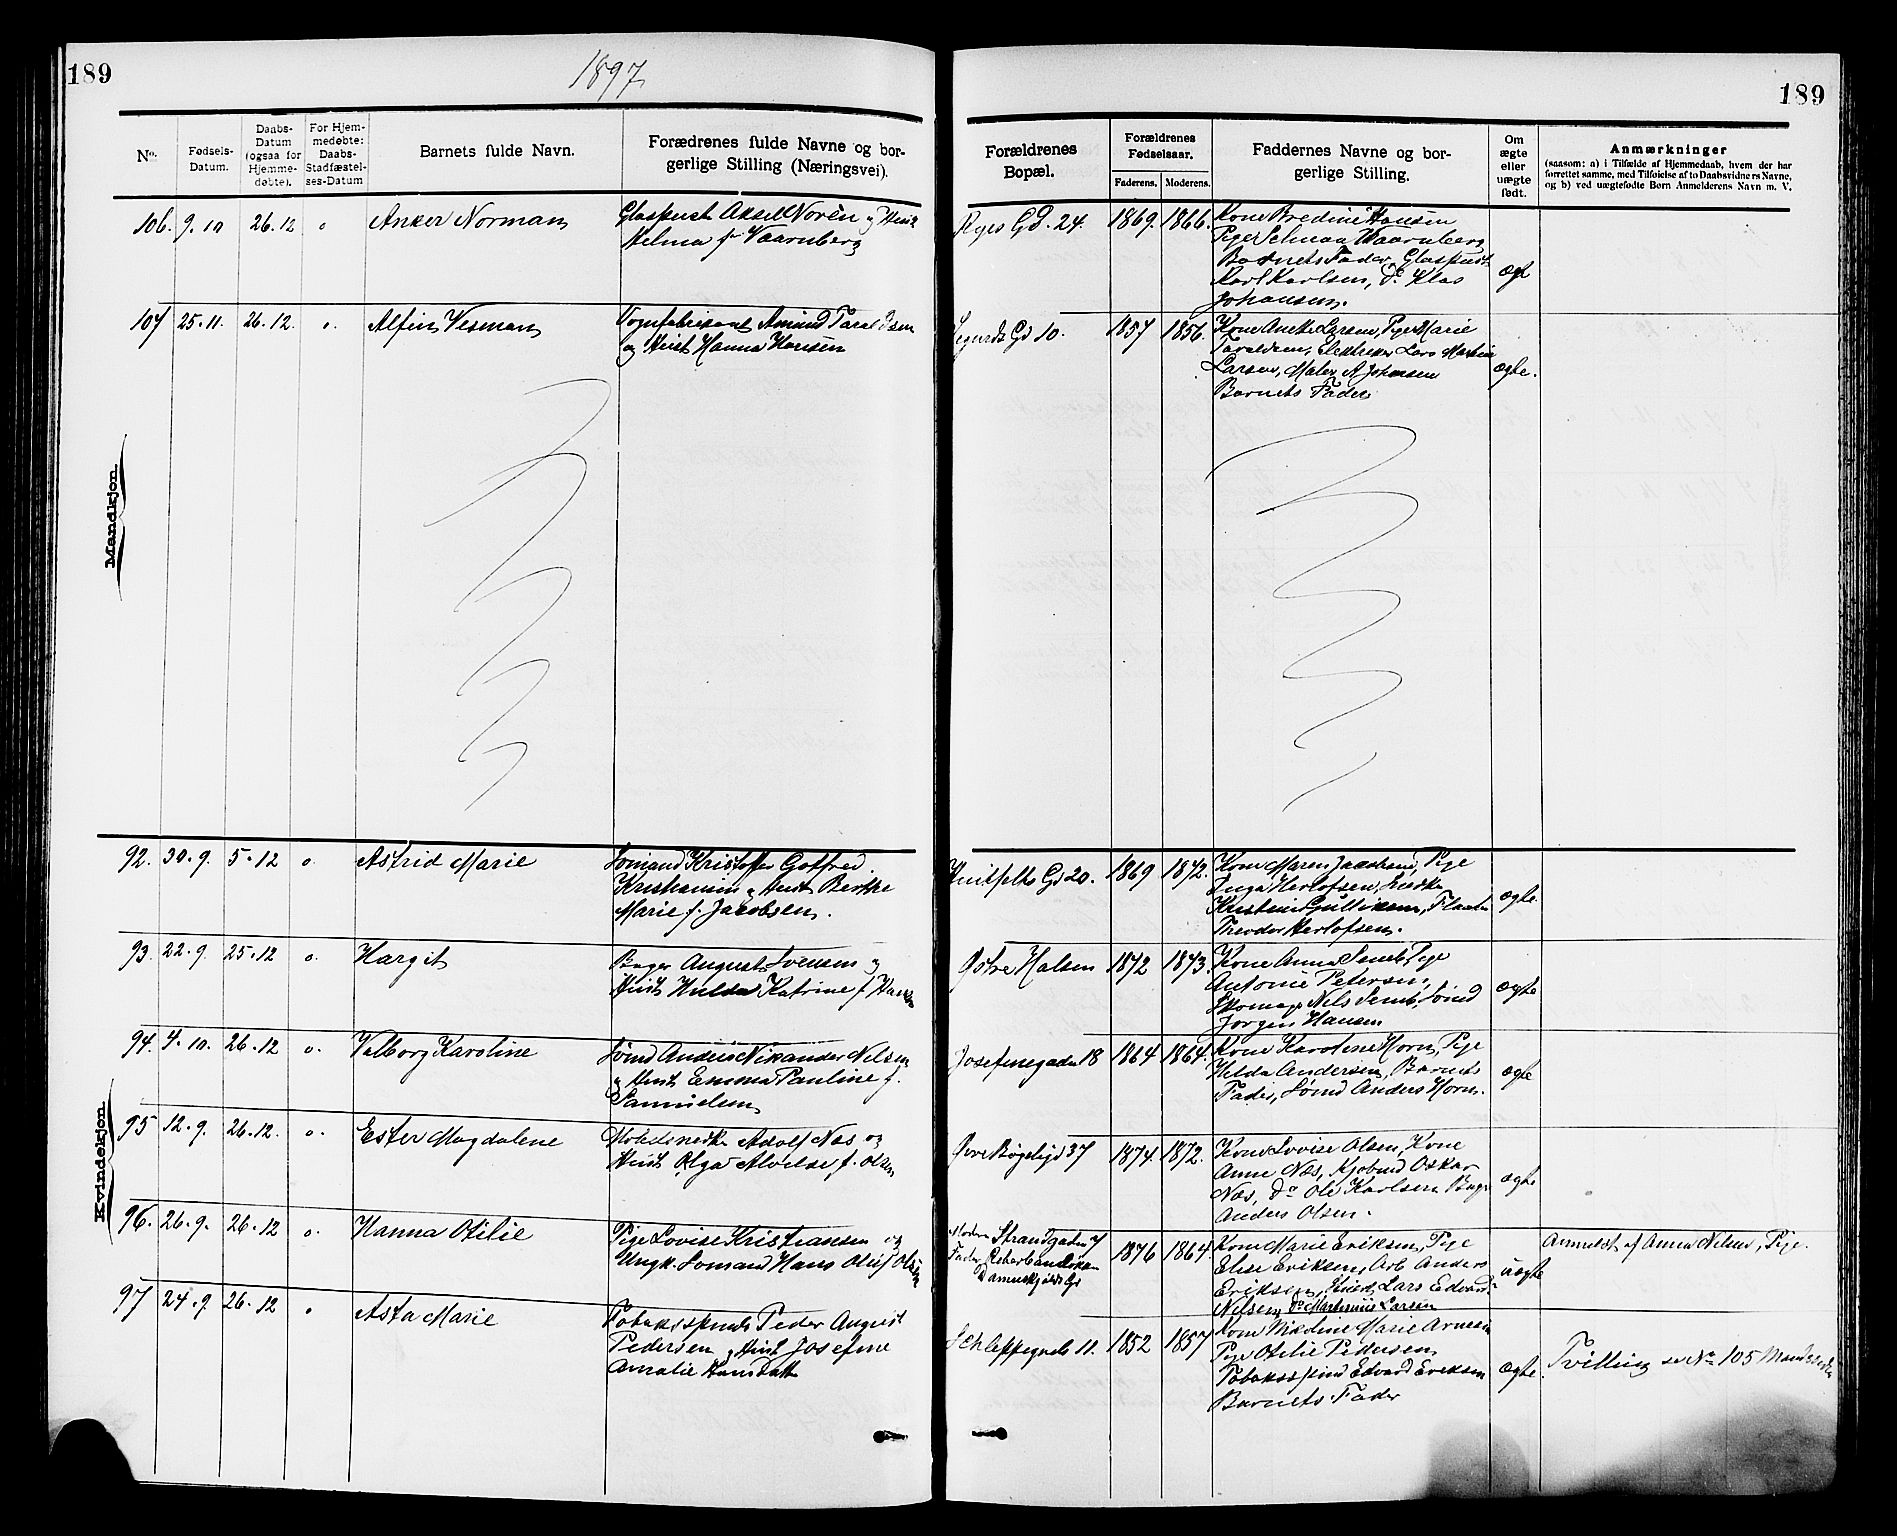 189
1897
189
No.
Fødsels-
Datum.
Daabs-
Datum
(ogsaa for
Hjemme-
døbte).
For Hjem-
medøbte:
Daabs-
Stadfæstel-
ses-Datum
Barnets fulde Navn.
Forædrenes fulde Navne og bor-
gerlige Stilling (Næringsvei).
Forældrenes
Bopæl.
Forældrenes
Fødselsaar.
Faderens. Moderens.
Faddernes Navne og bor-
gerlige Stilling.
Om
ægte
eller
uægte
født.
Anmærkninger
(saasom: a) i Tilfælde af Hjemmedaab, hvem der har
forrettet samme, med Tilføielse af to Daabsvidners Navne,
og b) ved uægtefødte Børn Anmelderens Navn m. V.
Mandkjøn.
106. 9.10 26.12 o Anker Norman
Glaspust Aksell Norén og Hust
Helma f. Vaarnberg
Ryes Gd. 24. 1869. 1866.
Kone Bredine Hansen
Pige Selmaa Waarnberg
Barnets Fader, Glaspust
Karl Karlsen, do Klas
Johansen.
ægt
107 25.11. 26.12. o. Alfin Vesman
Vognfabrikant Amund Taraldsen
og Hust Hanna Hansen
Sigurds Gd 10. 1857 1856.
Kone Anette Larsen, Pige Marie
Taraldsen, Elektriker Lars Martin
Larsen, Maler A Johansen
Barnets Fader
ægte.
Kvindekjøn.
92. 30.9. 5.12 o. Astrid Marie
Sømand Kristoffer Gotfred
Kristiansen og Hust Berthe
Marie f. Jacobsen.
Huitfelts Gd 20. 1869 1872.
Kone Maren Jacobsen, Pige
Inga Herlofsen,
Kristian Gulliksen,
Theodor Herlofsen.
ægte
93. 22.9. 25.12 o. Hargit
Bager August Svensen og
Hust Hulda Katrine f Hansen
Østre Halsen 1872 1873.
Kone Anna Semb, Pige
Antonie Petersen,
Skomag Nils Semb, Sømd
Jørgen Hansen
ægte
94. 4.10. 26.12 o. Valborg Karoline
Sømd Anders Nikander Nilsen
og Hust Emma Pauline f.
Samuelsen
Josefinegaden 18 1864 1864.
Kone Karoline Horn, Pige
Hilda Andersen, Barnets
Fader, Sømd Anders Horn.
ægte
95 12.9. 26.12. o. Ester Magdalene
Adolf Næs og
Hust Olga Alvilde f. Olsen
Øvre Bøgeligd 37 1874. 1872.
Kone Lovise Olsen, Kone
Anne Næs, Oskar
Næs, do Ole Karlsen Bager
Anders Olsen.
ægte
96. 26.9. 26.12 o. Hanna Otilie
Pige Lovise Kristiansen og
Ungk. Sømand Hans Oluf Olsen
Moderen Strandgaden 7
Fader
Danneskjolds Gd
1876 1864.
Kone Marie Eriksen, Pige
Elise Eriksen, Arb Anders
Eriksen, Lars Edvard
Nilsen, do Martinius Larsen
uægte
Anmeldt af Anna Nilsen, Pige.
97 24.9 26.12 o Asta Marie
Tobaksspinder Peder August
Pedersen og Hust Josefine
Amalie Hansdatter
Schleppegrels 11. 1852 1857
Kone Nikoline Marie Arnesen
Pige Otilie Pedersen
Tobaksspind Edvard Eriksen
Barnets Fader
ægte.
Tvilling se No 105 Mandskjøn